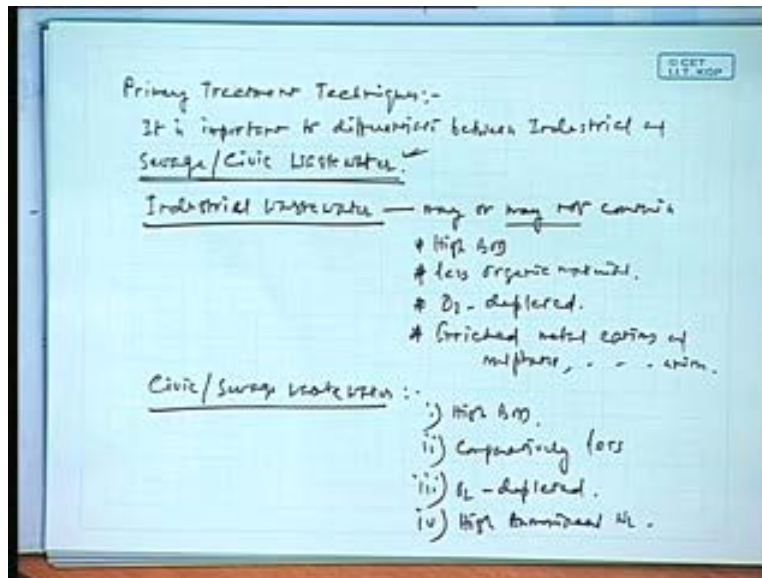 © CET
I.I.T. KGP
Primary Treatment Techniques:-
It is important to differentiate between Industrial and
Sewage/Civic Wastewater.
Industrial wastewater — may or may not contain
* High BOD
* less organic material.
* O2 - depleted.
* Enriched metal cations and
sulphate, - - - anions.
Civic/Sewage wastewater :-
i) High BOD.
ii) Comparatively less
iii) O2 - depleted.
iv) High Ammoniacal N2.